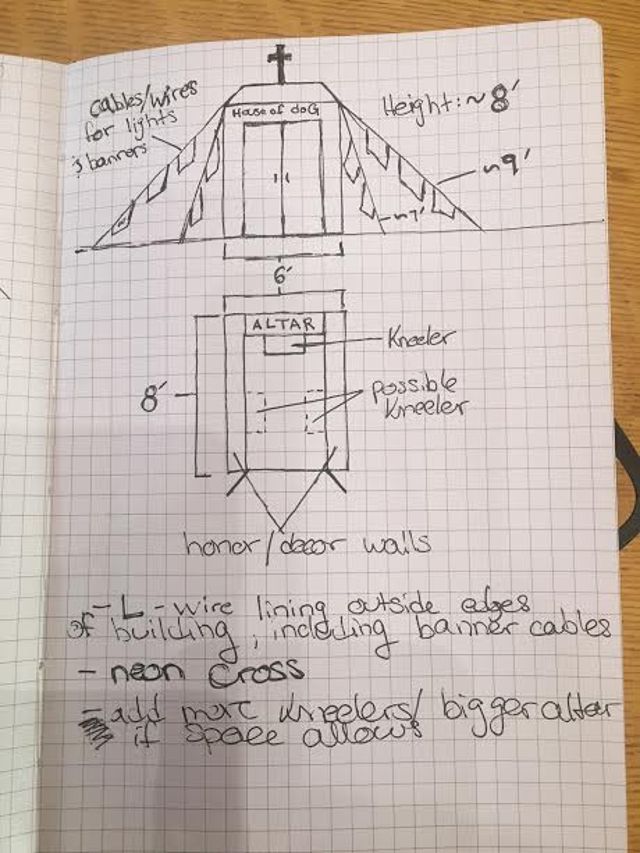 cables/wires
for lights
& banners
House of doG
Height: ~8'
~9'
~7'
6'
ALTAR
Kneeler
8'
possible
Kneeler
honor/decor walls
- L - wire lining outside edges
of building, including banner cables
- neon cross
- add more kneelers/bigger altar
if space allows